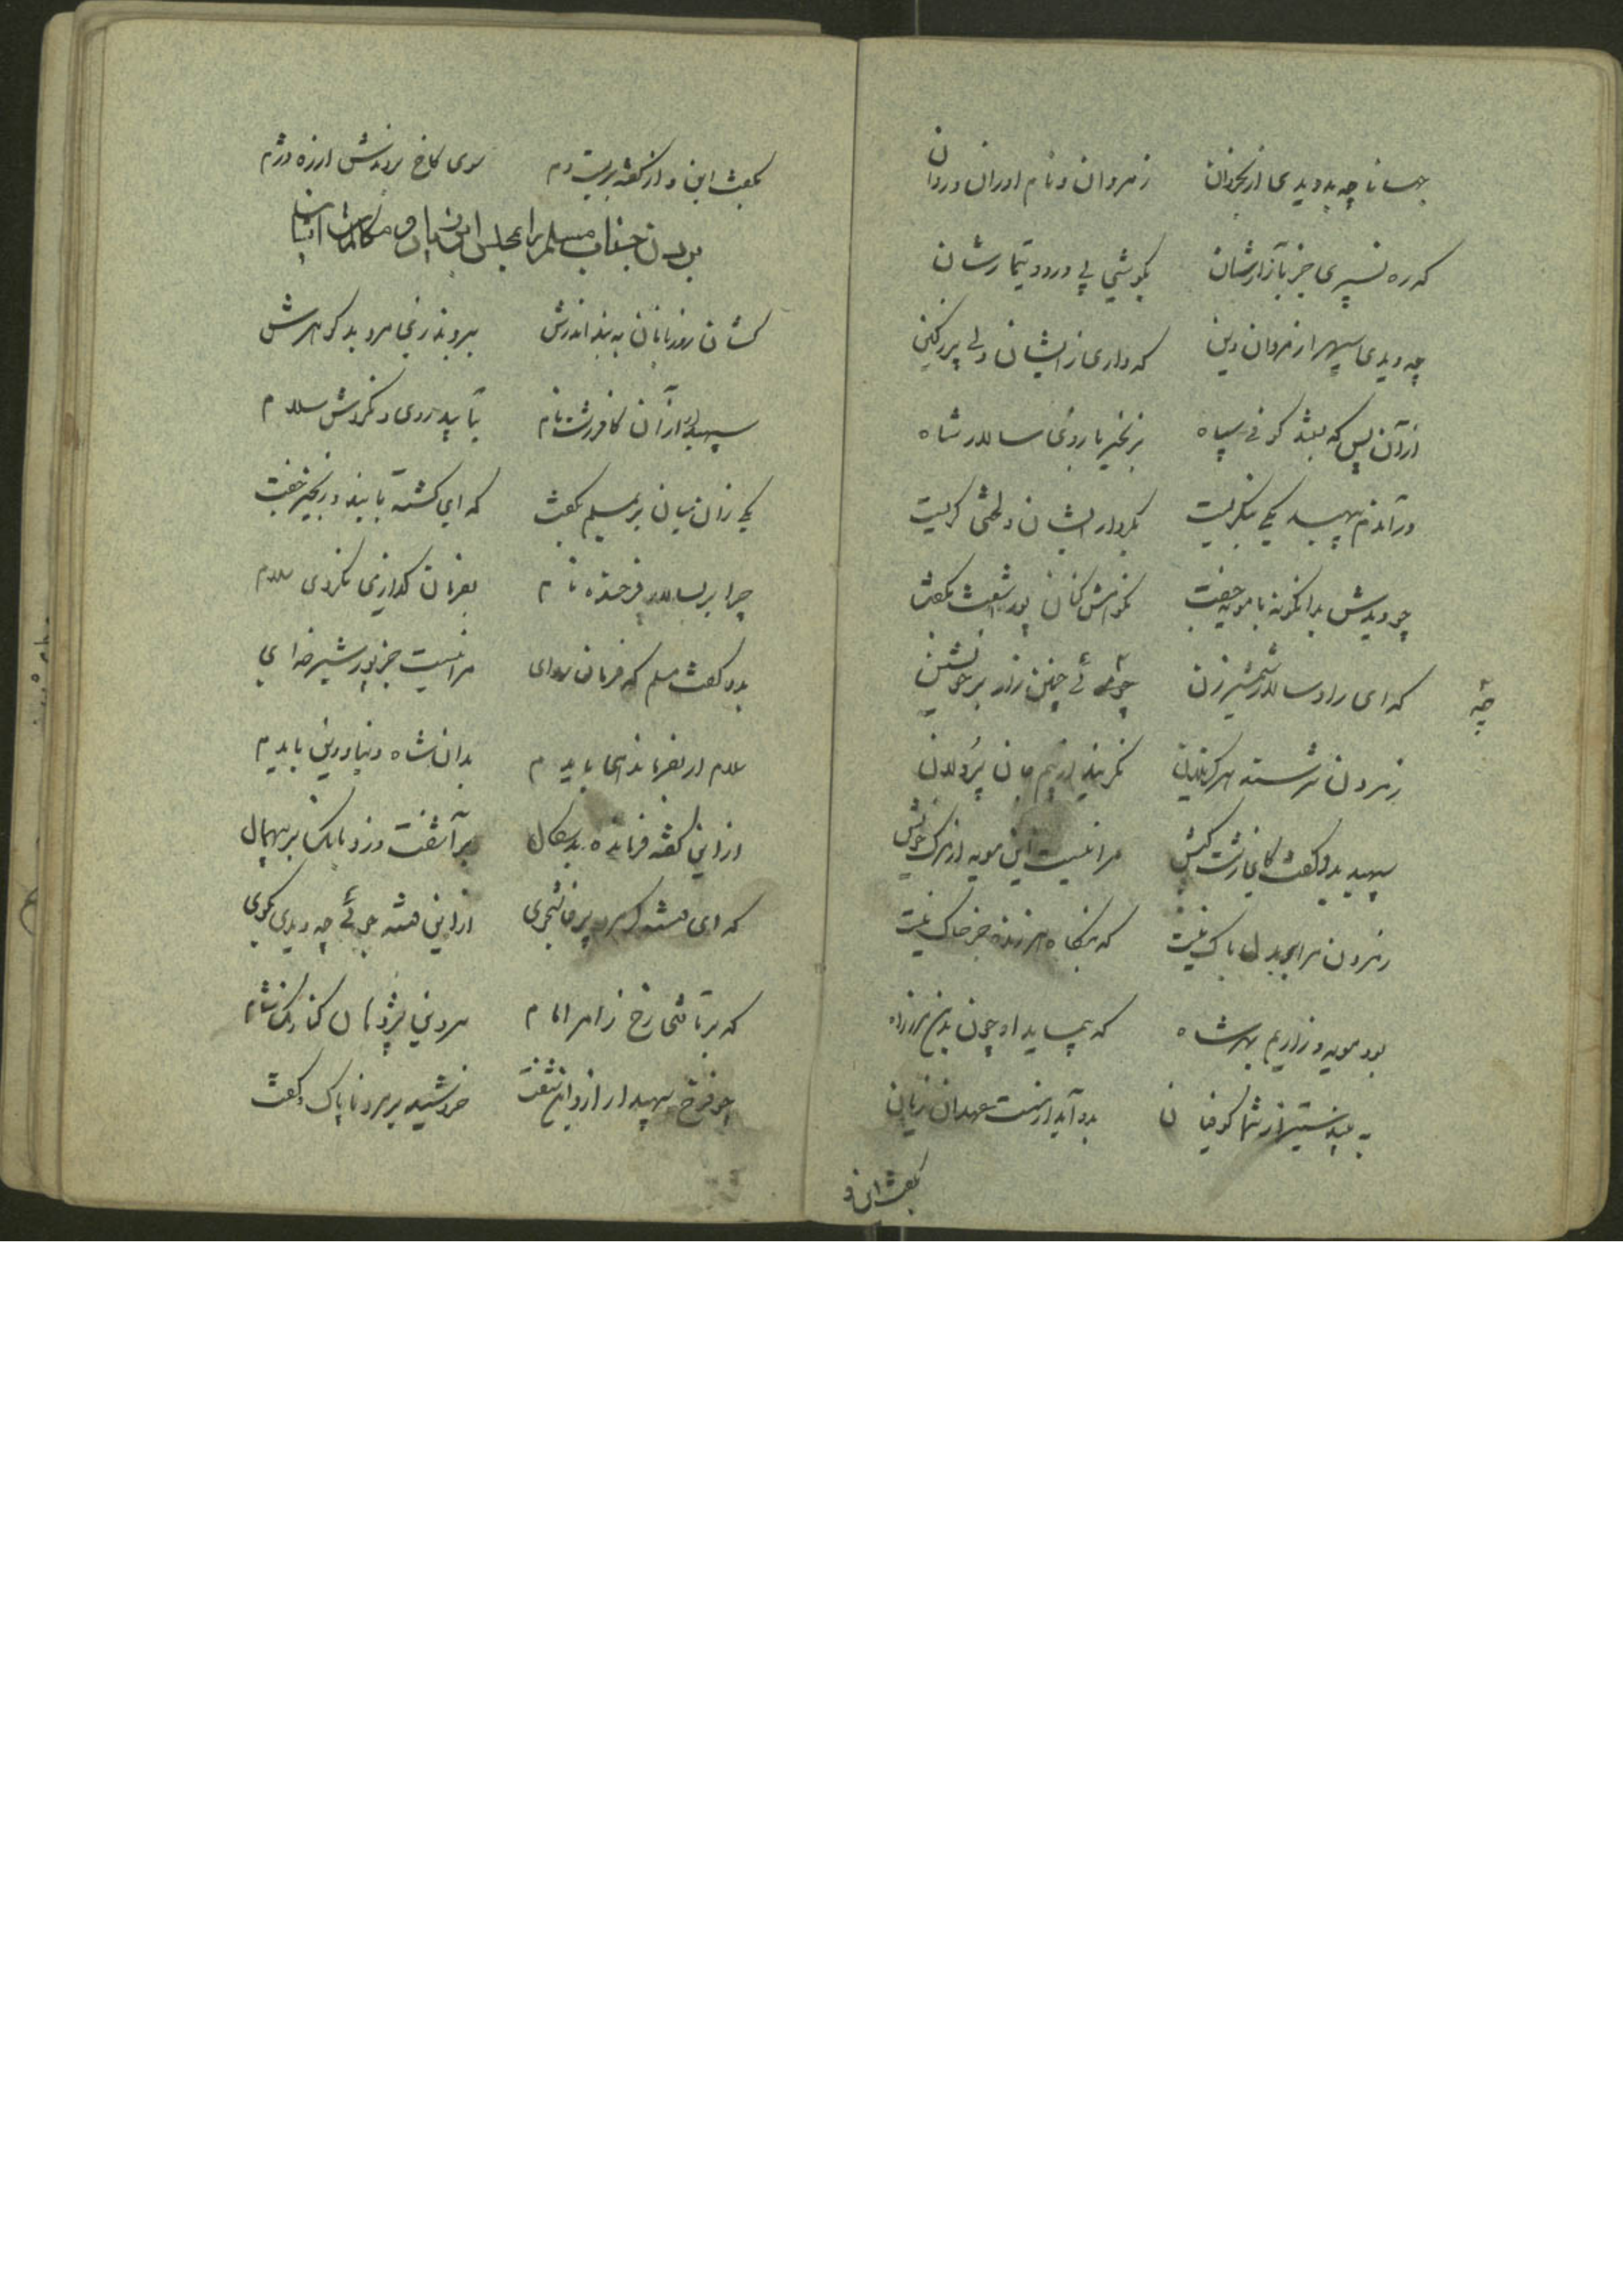 جهانا چه بد دیدی از بخردان ز مردان و نام اوران و ردان
که ره نسپری جز بآزارشان بکوشی پی درد و تیمارشان
چه دیدی سپهر از مردان دین که داری از ایشان دلی پر ز کین
از آن پس که بیشد کوفی سپاه بزنجیر بازوی سالار شاه
در آندم سپهبد یکی بنگریست بکردار ایشان و لختی گریست
چو دیدش بدانگونه با مویه جفت نکوهش کنان پور اشعث بگفت
که ای راد سالار شمشیر زن چه موئی چنین زار بر خویشتن
چه
ز مردن نترسند هرگز یلان نگریند از بیم جان پردلان
سپهبد بدو گفت کای زشت کیش مرا نیست این مویه از مرگ خویش
ز مردن مرا هیچ در دل باک نیست که بنگاه هر زنده جز خاک نیست
بود مویه و زاریم بهر شاه که پیماید او چون بدینمرز راه
به بیند ستیز از شما کوفیان بدو آید از سست عهدان زیان
بگفت این و
بگفت این و از گفته بربست دم سوی کاخ بردندش از ره دژم
بردن جناب مسلم را بمجلس ابن زیاد و مکالمات ایشان
کشان روزبانان به بند اندرش ببردند زی مرد بد گوهرش
سپهدار از آن کافر زشت نام بتابید روی و نکردش سلام
یکی زان میان بر بمسلم بگفت که ای گشته با بند و زنجیر جفت
چرا بر بسالار فرخنده نام بفرمان گذاری نکردی سلام
بدو گفت مسلم که فرمان روای مرا نیست جز پور شیر خدای
سلام ار بفرماندهی بایدم بدان شاه دنیا و دین بایدم
از این گفته فرمانده بدسگال برآشفت و زد بانک بر بیهمال
که ای هشته از این هشته جوئی چه دیدی بگوی
که برتافتی رخ ز امر امام
چو فرخ سپهدار از او این شنفت خروشید بر مرد ناپاک و گفت